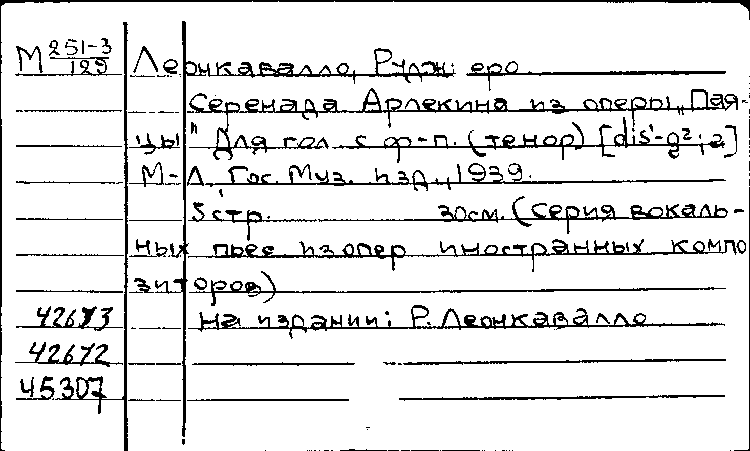 М 251-3/129 Леонкавалло, Руджеро
Серенада Арлекина из оперы „Пая-
цы" Для гол. с ф-п. (тенор) [dis¹-g²; a]
М-Л. Гос. Муз. изд., 1939.
5 стр. 30см. (Серия вокаль-
ных пьес из опер иностранных компо
зиторов)
42673 На издании: Р. Леонкавалло
42672
45307